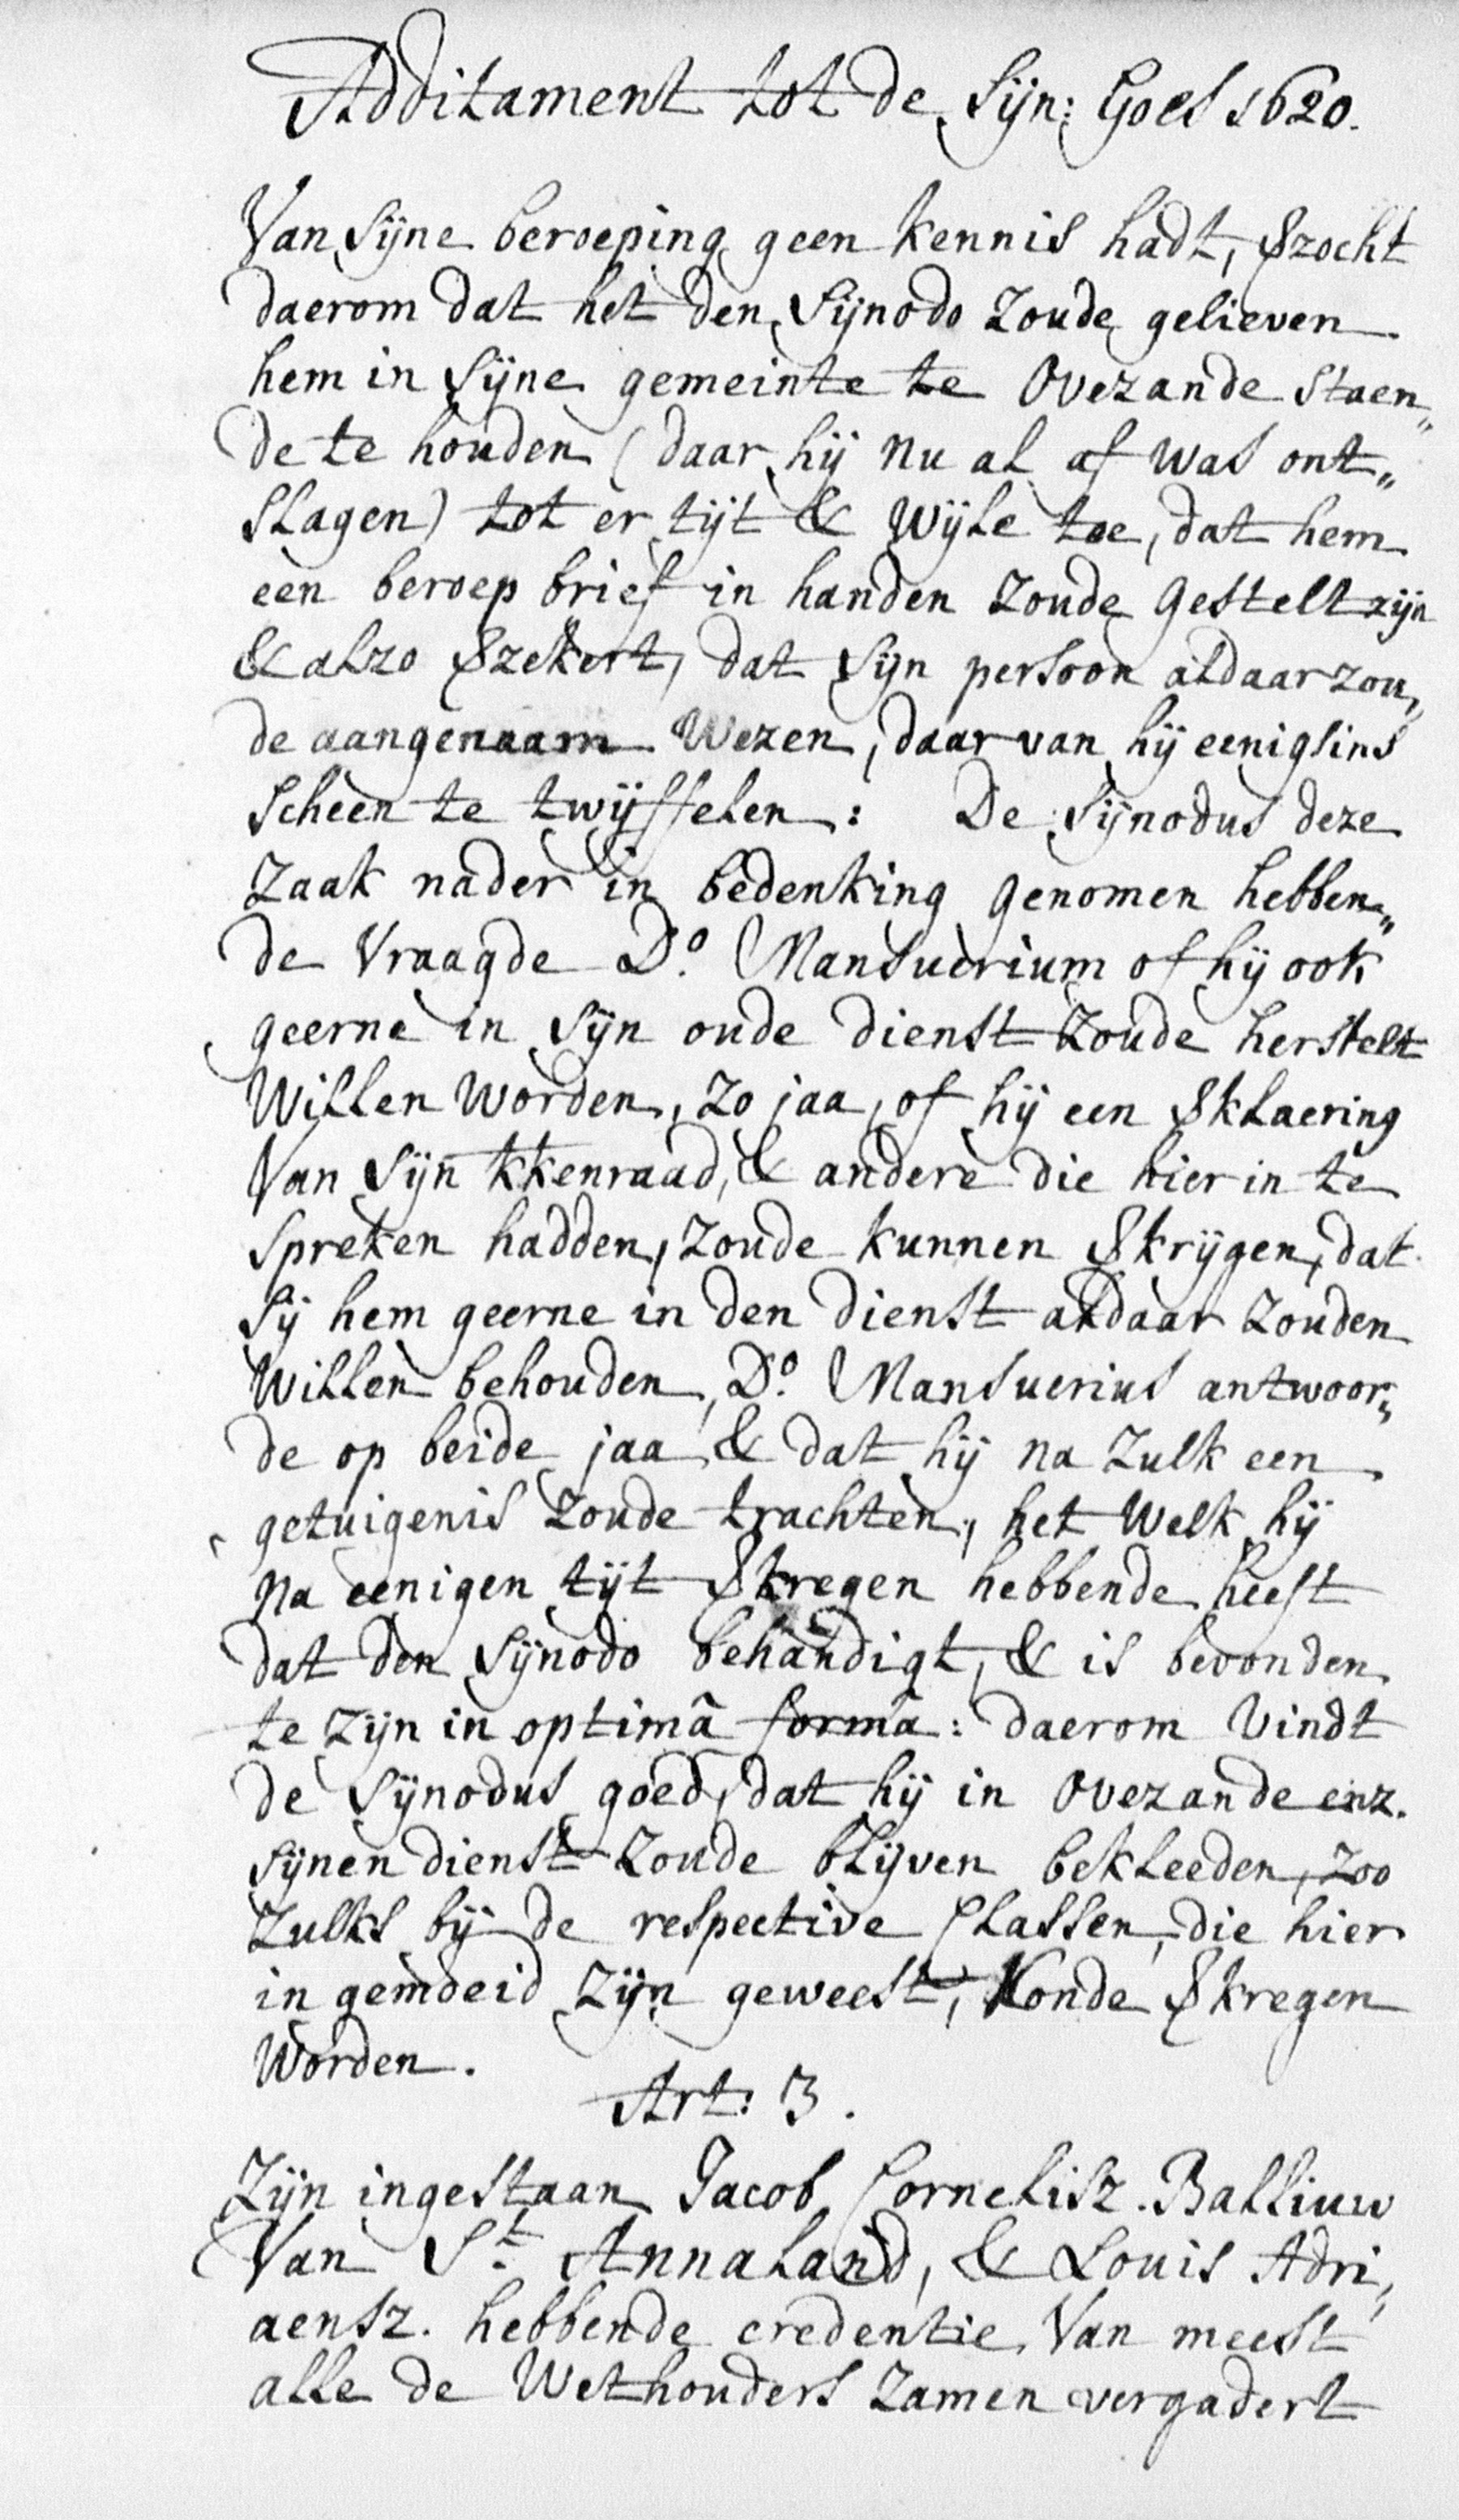 Additament tot de Sijn: Goes 1620.
Van Sijne beroeping geen kennis hadt, &zocht
daerom dat het den Sijnodo zoude gelieven
hem in Sijne gemeinte te Ovezande staen„
de te houden (daar hij nu al af was ont„
slagen) tot er tijt & wijle toe, dat hem
een beroep brief in handen zoude gestelt zijn
& alzo &zekert, dat Sijn persoon aldaar zou„
de aangenaam wezen, daar van hij eenigsins
scheen te twijffelen: De Sijnodus deze
zaak nader in bedenking genomen hebben„
de vraagde Do. Mansuerium of hij ook
geerne in Sijn oude dienst zoude herstelt
willen worden, zo jaa, of hij een &klaering
van Sijn kkenraad, & andere die hier in te
spreken hadden, zoude kunnen &krijgen, dat
Sij hem geerne in den dienst aldaar zouden
willen behouden, Do. Mansuerius antwoor„
de op beide jaa & dat hij na zulk een
getuigenis zoude trachten, het welk hij
na eenigen tijt &kregen hebbende heeft
dat den Sijnodo behandigt, & is bevonden
te zijn in optimâ formâ: daerom vindt
de Sijnodus goed, dat hij in Ovezande enz.
Sijnen dienst zoude blijven bekleeden, zoo
zulks bij de respective Classen, die hier
in gemoeid zijn geweest, konde &kregen
worden.
Art: 3.
Zijn ingestaan Jacob Cornelisz. Balliuw
van St. Annaland, & Louis Adri„
aensz. hebbende credentie van meest
alle de Wethouders zamen vergadert